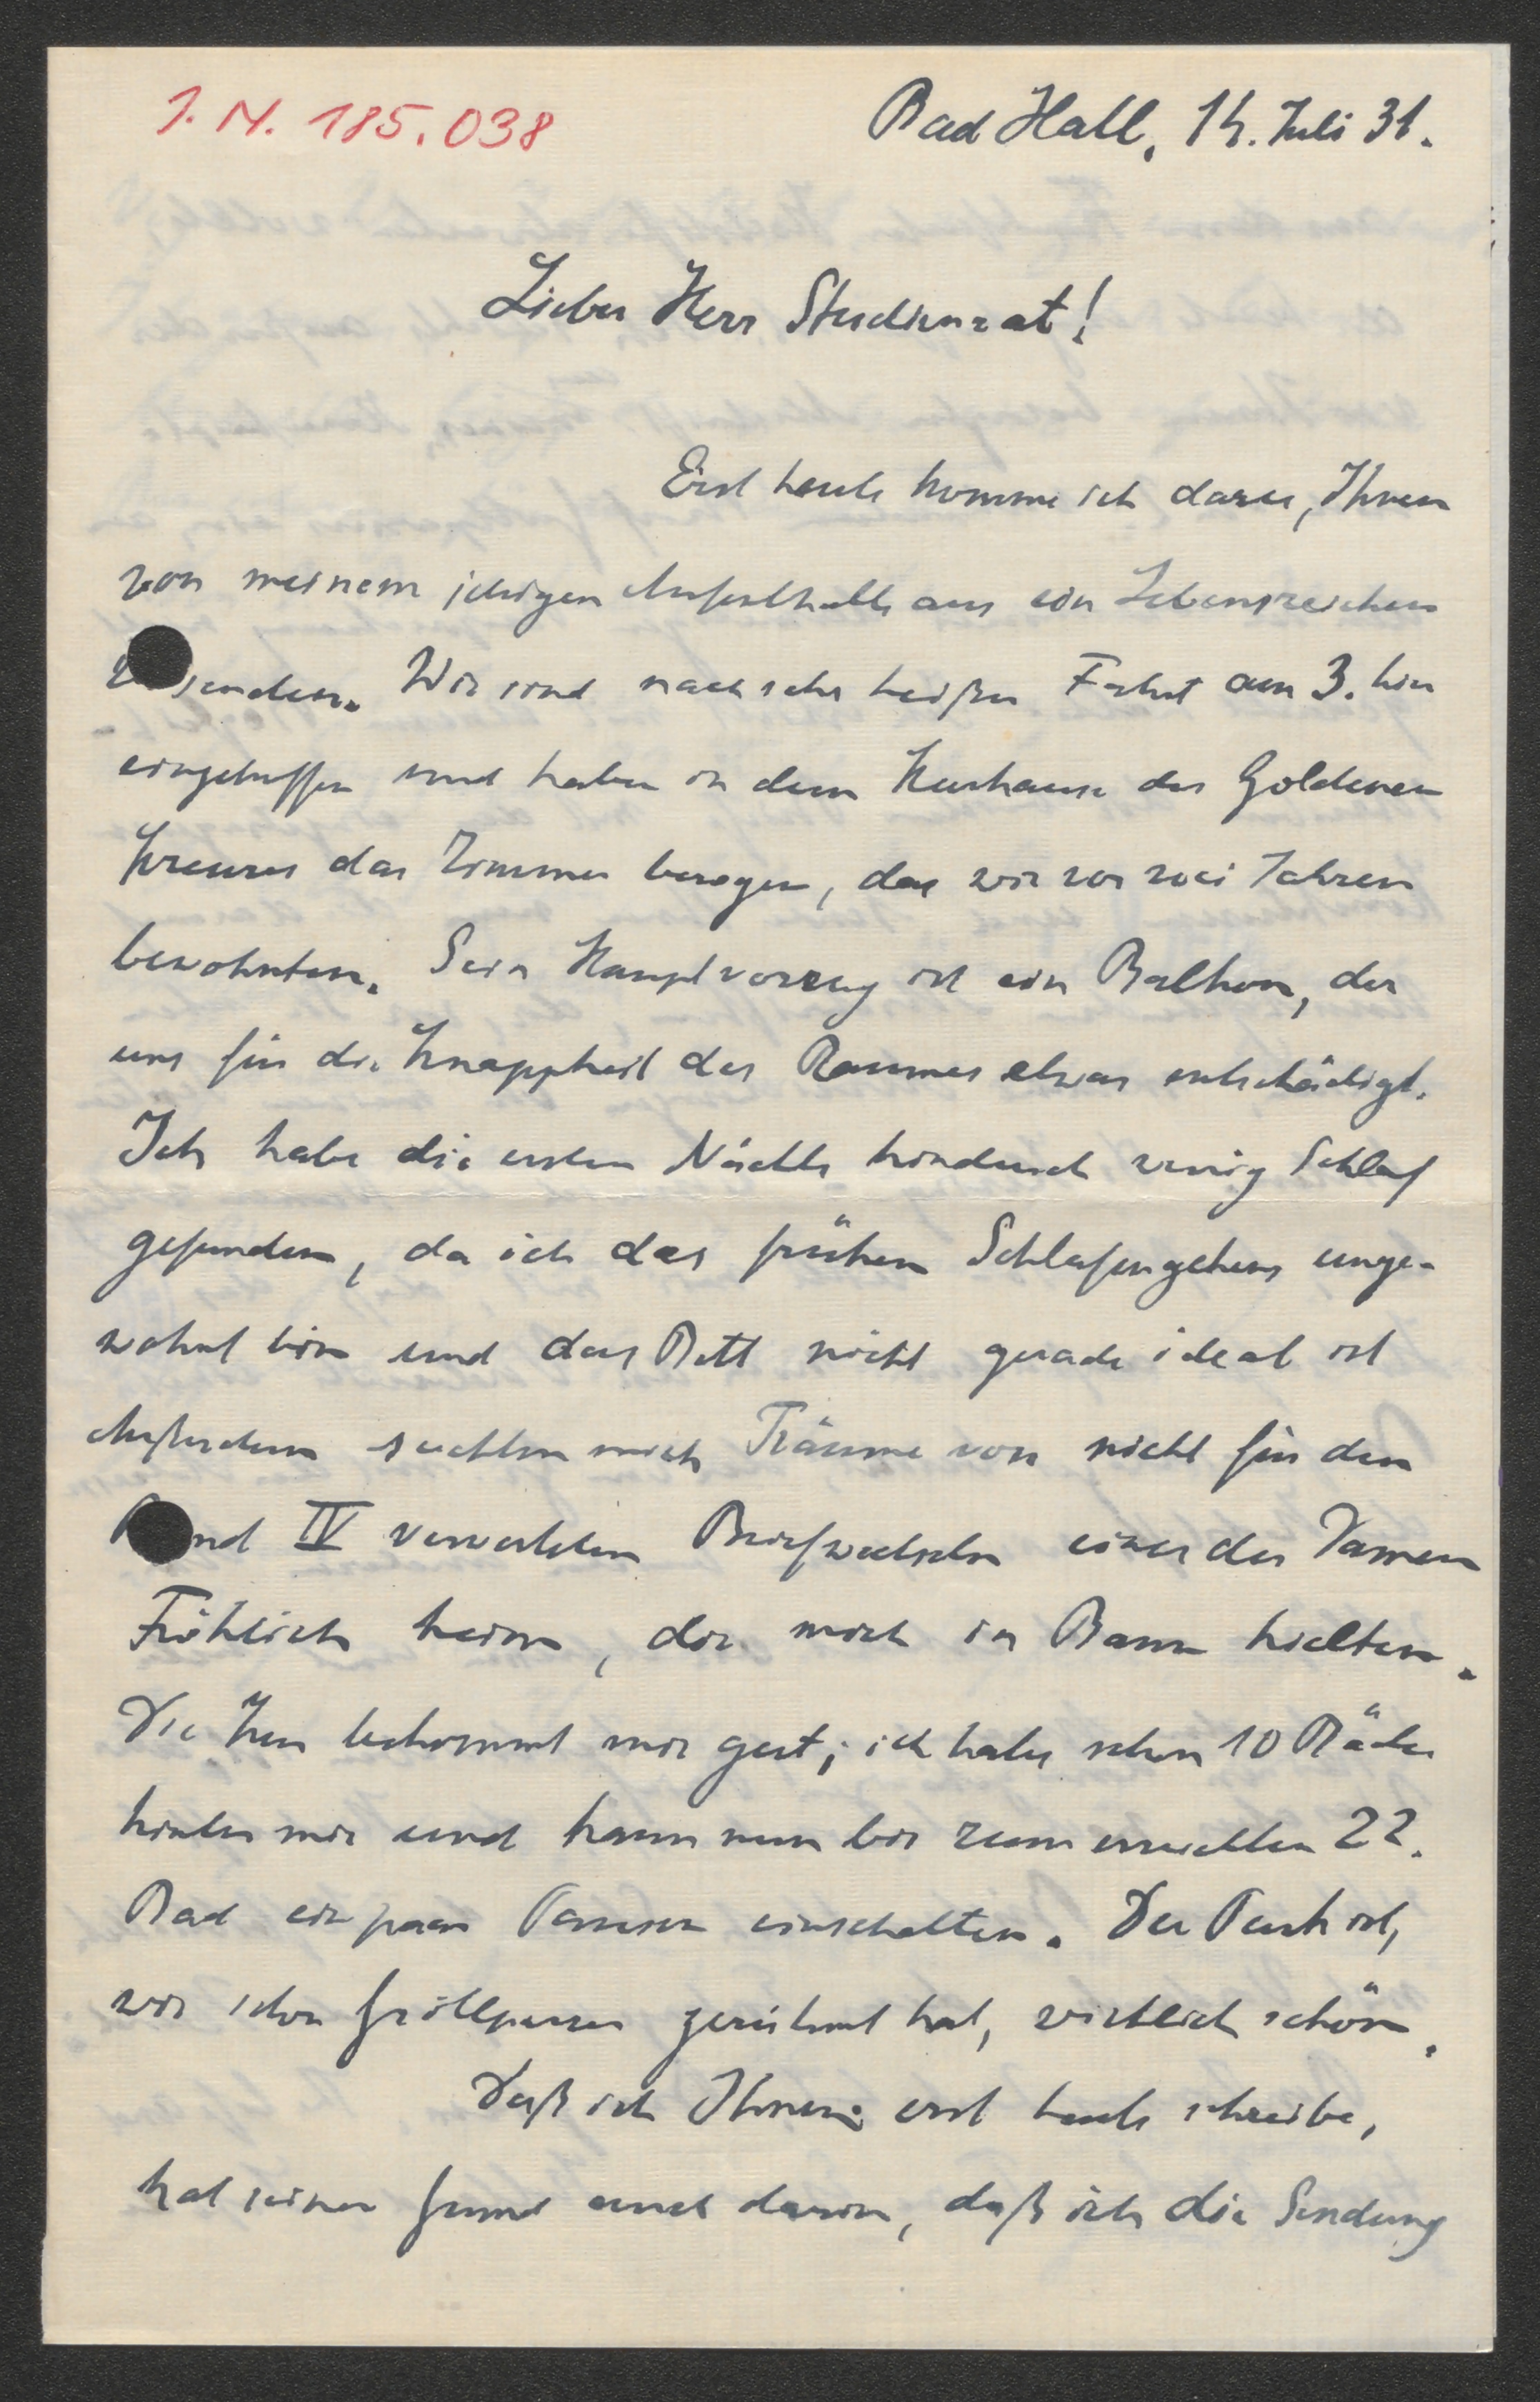 J. N. 185.038
Bad Hall, 14. Juli 31.
Lieber Herr Studienrat!
Erst heute komme ich dazu, Ihnen
von meinem jetzigen Aufenthalte aus ein Lebenszeichen
zu senden. Wir sind nach sehr heißer Fahrt am 3. hier
eingetroffen und haben in dem Kurhause des Goldenen
Kreuzes das Zimmer bezogen, das wir vor zwei Jahren
bewohnten. Sein Hauptvorzug ist ein Balkon, der
uns für die Knappheit des Raumes etwas entschädigt.
Ich habe die ersten Nächte hindurch wenig Schlaf
gefunden, da ich des frühen Schlafengehens unge-
wohnt bin und das Bett nicht gerade ideal ist
Außerdem suchten mich Träume von nicht für den
Band IV verwerteten Briefwechseln einer der Damen
Fröhlich heim, die mich in Bann hielten.
Die Kur bekommt mir gut; ich habe schon 10 Bäder
hinter mir und kann nun bis zum 22.
Bad ein paar Pausen einschalten. Der Park ist,
wie schon Grillparzer gerühmt hat, wirklich schön.
Daß ich Ihnen erst heute schreibe,
hat seinen Grund auch darin, daß ich die Sendung